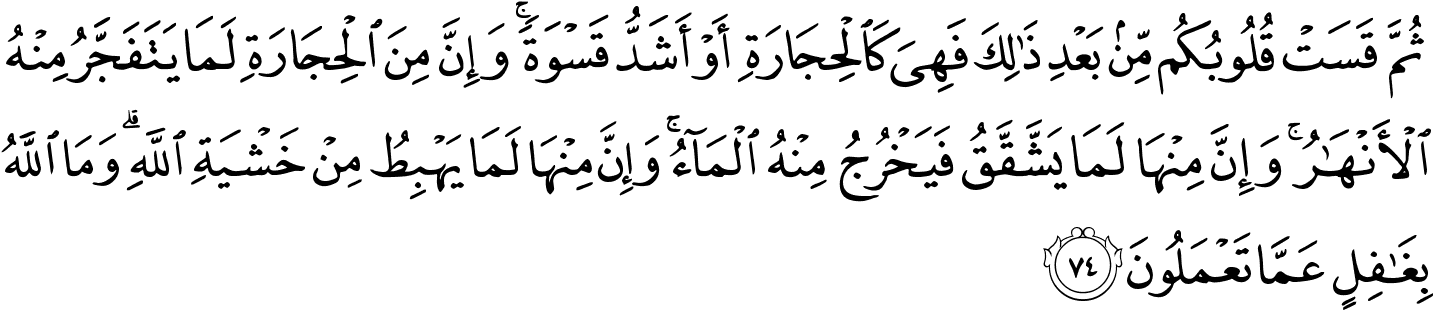 ثُمَّ قَسَتْ قُلُوبُكُم مِّنۢ بَعْدِ ذَٰلِكَ فَهِىَ كَٱلْحِجَارَةِ أَوْ أَشَدُّ قَسْوَةً ۚ وَإِنَّ مِنَ ٱلْحِجَارَةِ لَمَا يَتَفَجَّرُ مِنْهُ
ٱلْأَنْهَـٰرُ ۚ وَإِنَّ مِنْهَا لَمَا يَشَّقَّقُ فَيَخْرُجُ مِنْهُ ٱلْمَآءُ ۚ وَإِنَّ مِنْهَا لَمَا يَهْبِطُ مِنْ خَشْيَةِ ٱللَّهِ ۗ وَمَا ٱللَّهُ
بِغَـٰفِلٍ عَمَّا تَعْمَلُونَ ٧٤